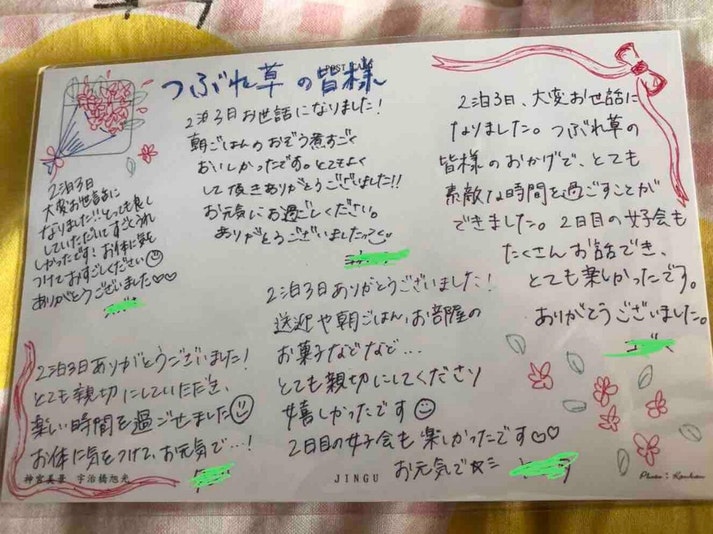 POST CARD
つぶれ草の皆様
2泊3日お世話になりました!
朝ごはんのおぞう煮すごく
おいしかったです。とてもよく
して頂きありがとうございました!!
お元気にお過ごしください。
ありがとうございましたっ
2泊3日
大変お世話に
なりました!!とっても良く
していただいてすごくうれ
しかったです!お体に気を
つけておすごしください
ありがとうございました♡♡
2泊3日、大変お世話に
なりました。つぶれ草の
皆様のおかげで、とても
素敵な時間を過ごすことが
できました。2日目の女子会も
たくさんお話でき、
とても楽しかったです。
ありがとうございました。
2泊3日ありがとうございました!
とても親切にしていただき、
楽しい時間を過ごせました
お体に気をつけて、お元気で…!
2泊3日ありがとうございました!
送迎や朝ごはん、お部屋の
お菓子などなど…
とても親切にしてくださり
嬉しかったです
2日目の女子会も楽しかったです♡♡
お元気で
神宮美景 宇治橋旭光
JINGU
Photo: